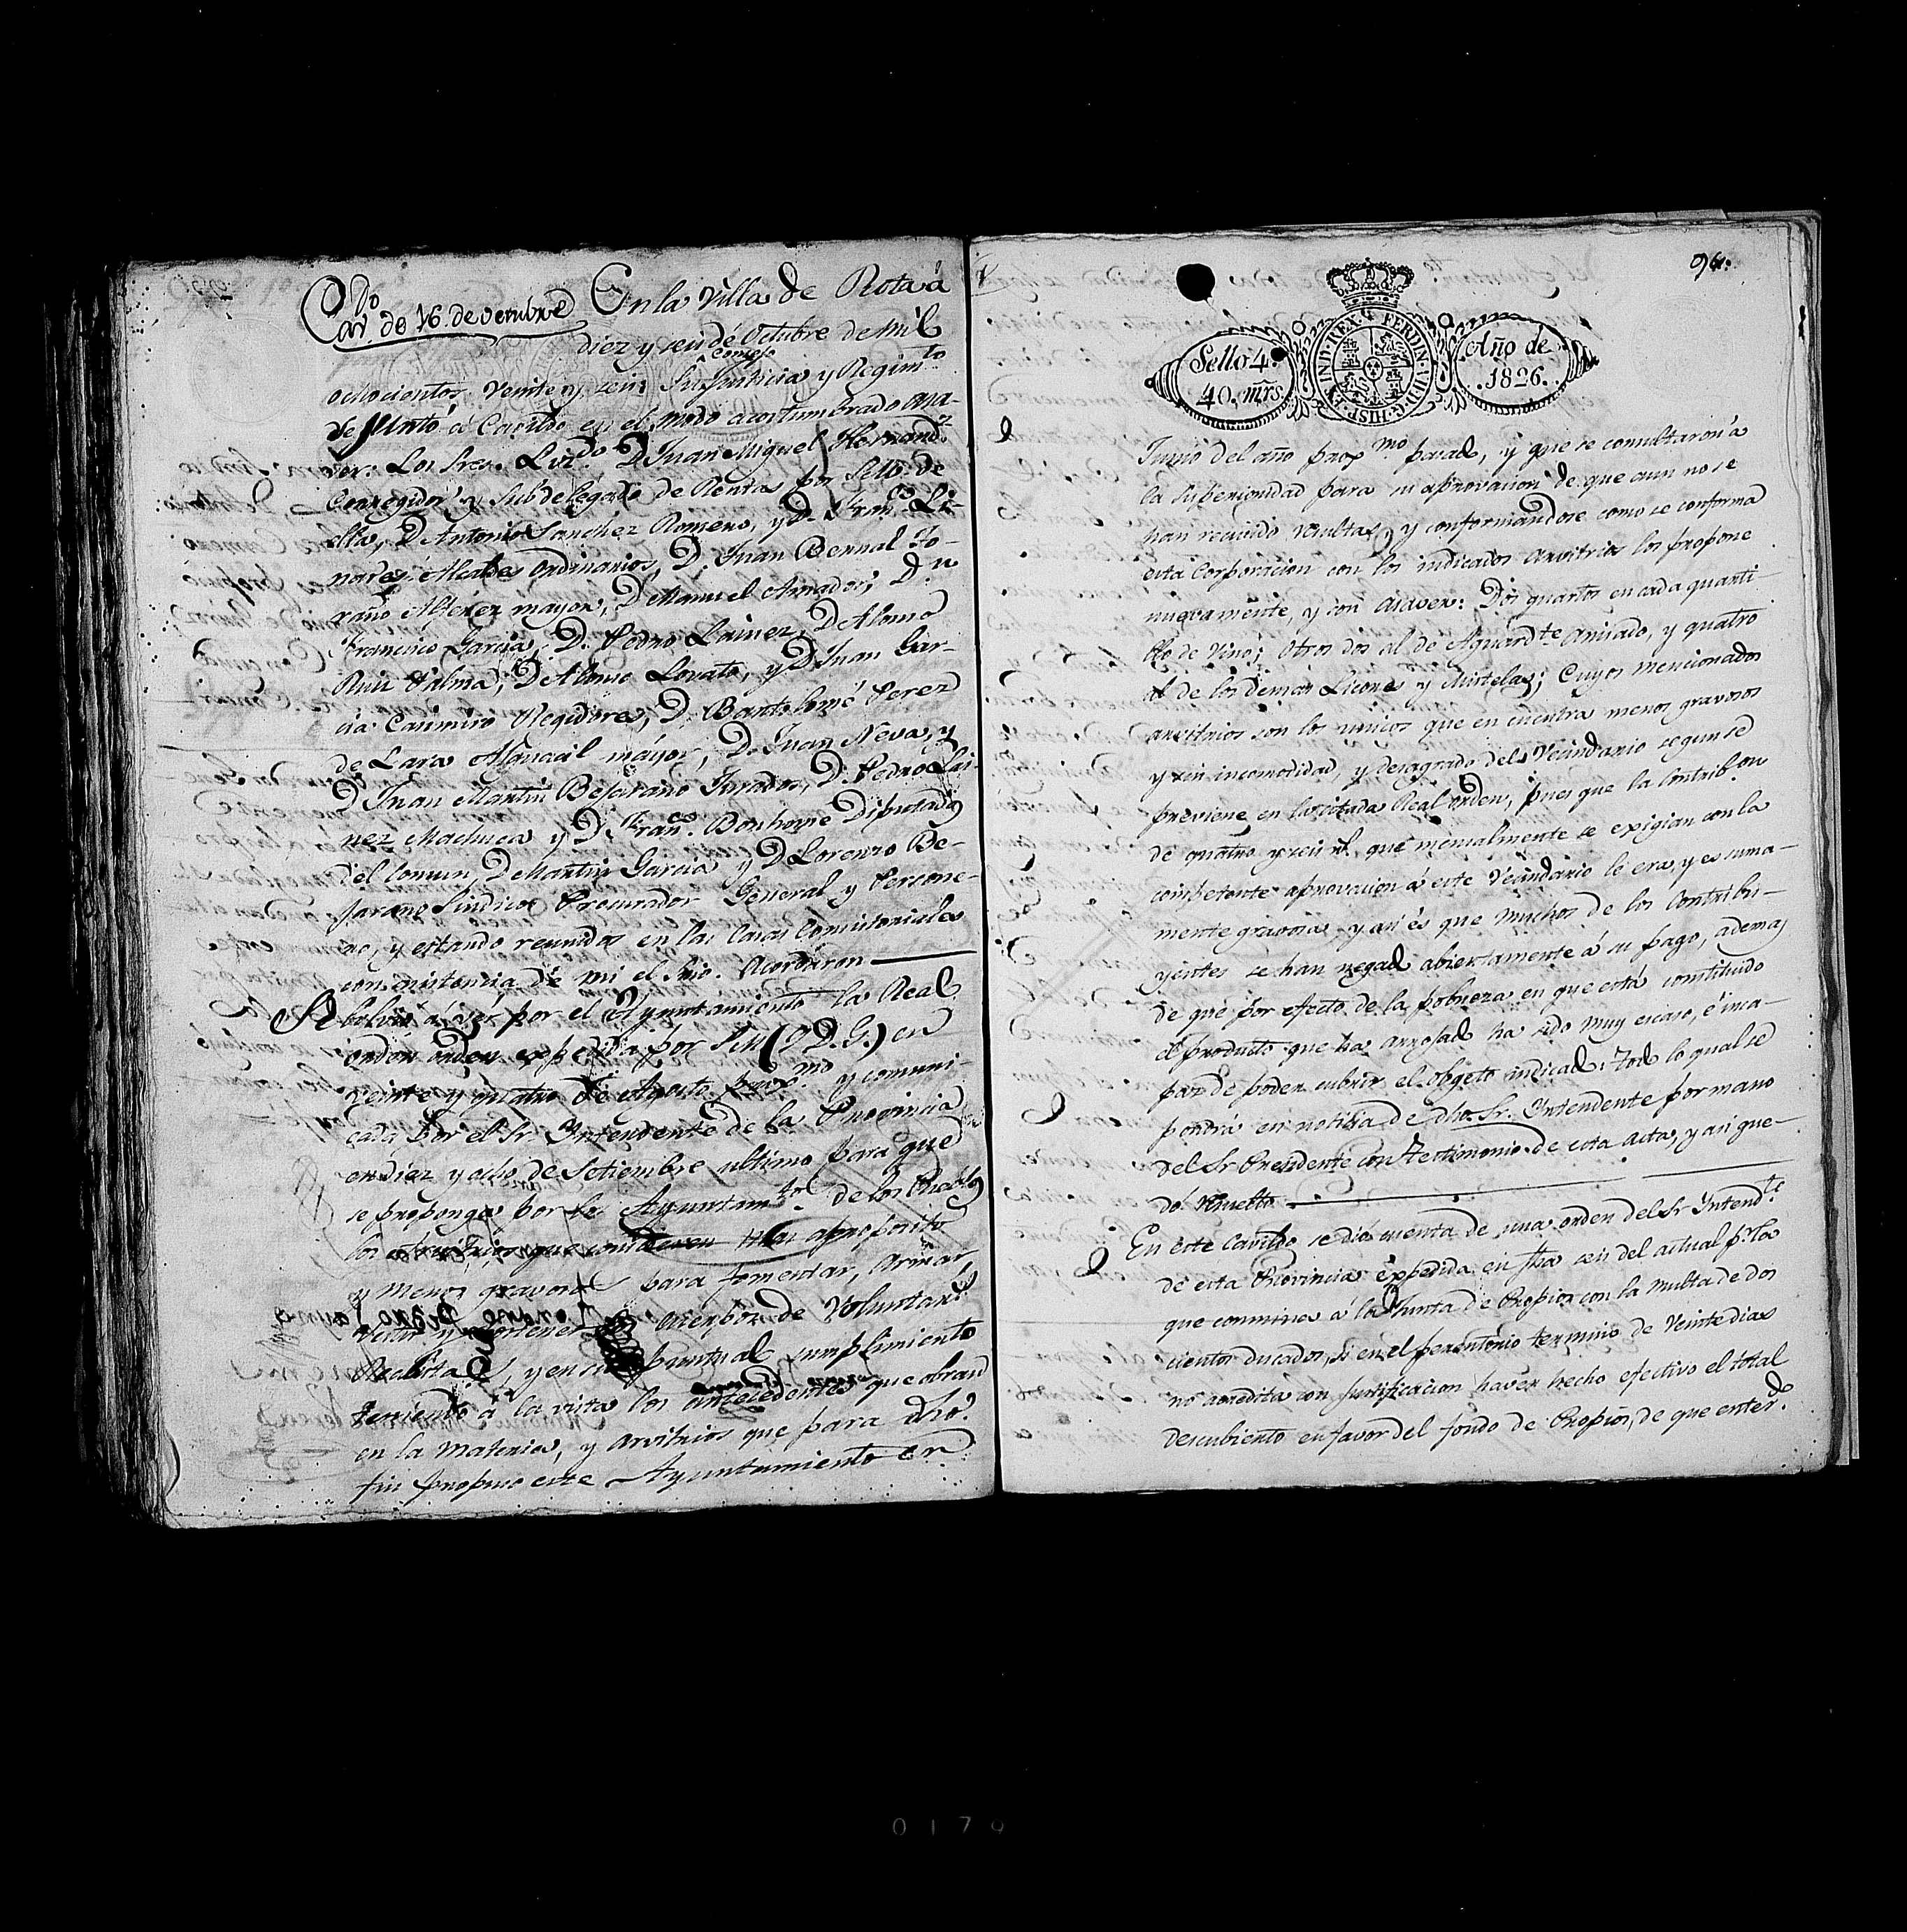 Cavdo de 16 de octubre
En la Villa de Rota á
diez y seis de Octubre de mil
ochocientos veinte y seis Su Consejo Justicia y Regimto
se Juntó á Cavildo en el modo acostumbrado á sa-
ver: Los Sres. Lizdo D Juan Miguel Hernandz
Corregidor y Subdelegado de Rentas por S.M. de
ella, D Antonio Sanchez Romero, y D. Franco Li-
nares Alcaldes Ordinarios, D. Juan Bernal
Alferez mayor, D Manuel Amador, D.n
Francisco Garcia, D. Pedro Lainez, D Alonso
Ruiz Palma, D Alonso Lovato, y D Juan Gar-
cia Casimiro Regidores, D. Bartolomé Perez
de Lara Alguacil mayor, D. Juan Neva, y
D Juan Martin Bejarano Jurados, D. Pedro Lai-
nez Machuca y D. Franco Bonhome Diputados
del Comun, D Martin Garcia y D Lorenzo Be-
jarano Sindicos Procurador General y Persone-
ro, y estando reunidos en las Casas Consistoriales
con asistencia de mi el Srio. Acordaron
Se bolvio á ver por el Ayuntamiento la Real
orden expedida por S.M (Q. D. G.) en
veinte y quatro de Agosto proxmo y comuni-
cada por el Sr Intendente de la Provincia
en diez y ocho de Setiembre ultimo para que
se proponga por los Ayuntamtos de los Pueblos
los Arvitrios que consideren mas aproposito
y menos gravosos para fomentar, Armar,
vestir y sostener los cuerpos de Voluntars
Realistas, y en su puntual cumplimiento
teniendo á la vista los antecedentes que obran
en la materia, y arvitrios que para dho
fin propuso este Ayuntamiento en
96.
Sello 4º
40. mrs.
HISP. ET IND. REX. FERDIN. VII. D. G.
Año de
1826.
Junio del año proxmo pasado, y que se consultaron á
la Superioridad para su aprovacion de que aun no se
han recivido resultas, y conformandose como se conforma
esta Corporacion con los indicados Arvitrios los propone
nuevamente, y son á saver: Dos quartos en cada quarti-
llo de Vino; otros dos al de Aguardte Anisado, y quatro
al de los demas Licores y Mistelas; Cuyos mencionados
arvitrios son los unicos que encuentra menos gravosos
y sin incomodidad, y desagrado del Vecindario segun se
previene en la citada Real orden, pues que la Contribon
de quatro y seis rs. que mensualmente se exigian con la
competente aprovacion á este Vecindario le era, y es suma-
mente gravosa y asi és que muchos de los Contribu-
yentes se han negado abiertamente á su pago, ademas
de que por efecto de la pobreza en que está constituido
el producto que ha arrojado ha sido muy escaso, é inca-
paz de poder cubrir el obgeto indicado: Todo lo qual se
pondrá en noticia de dho Sr. Intendente por mano
del Sr Presidente con Testimonio de esta acta, y asi que-
dó resuelto
En este Cavildo se dió cuenta de una orden del Sr Intendte
de esta Provincia expedida en fha seis del actual pr la
que conmina á la Junta de Propios con la multa de dos
cientos ducados, si en el perentorio termino de Veinte dias
no acredita con Justificacion haver hecho efectivo el total
descubierto en favor del fondo de Propios, de que enterdo